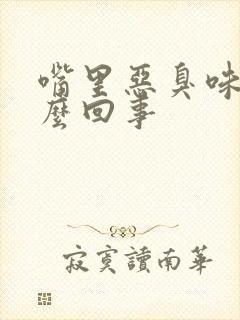 嘴里惡臭味
麽回事
寂寞讀南華